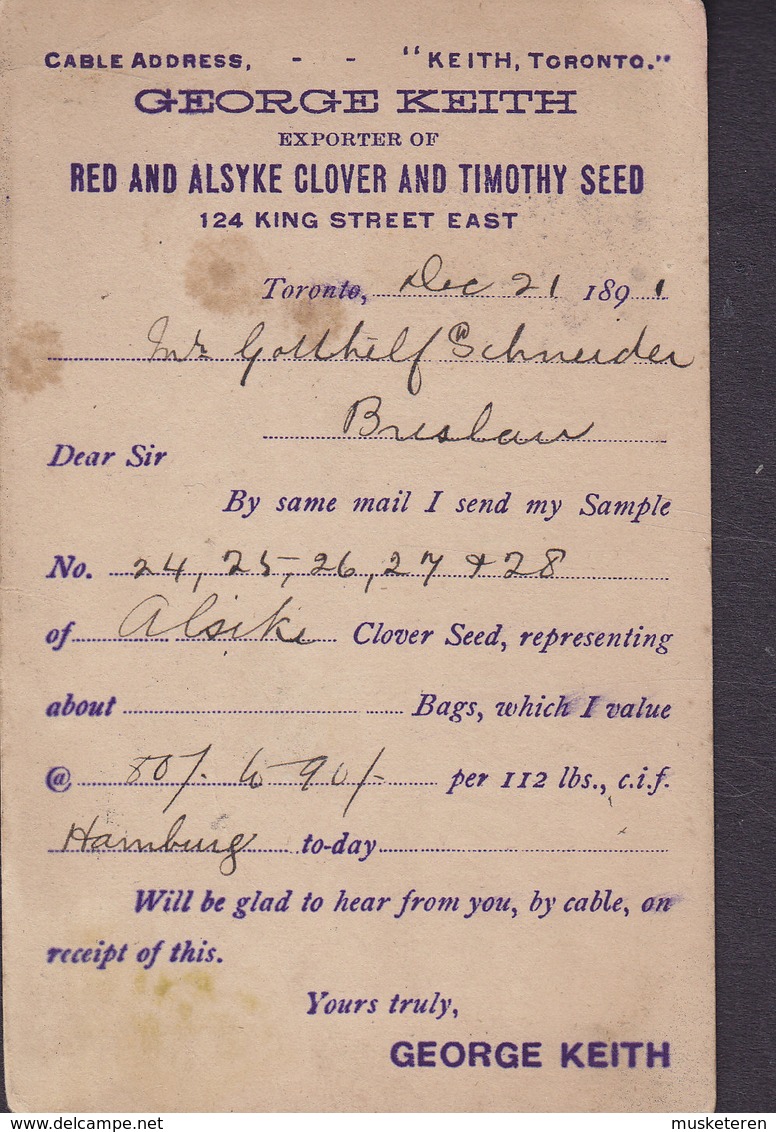 CABLE ADDRESS, - - "KEITH, TORONTO."
GEORGE KEITH
EXPORTER OF
RED AND ALSYKE CLOVER AND TIMOTHY SEED
124 KING STREET EAST
Toronto, Dec 21 1891
Mr Gotthelf Schneider
Breslau
Dear Sir
By same mail I send my Sample
No. 24, 25, 26, 27 + 28
of Alsike Clover Seed, representing
about Bags, which I value
@ 80/- to 90/- per 112 lbs., c.i.f.
Hamburg to-day
Will be glad to hear from you, by cable, on
receipt of this.
Yours truly,
GEORGE KEITH
www.delcampe.net musketeren